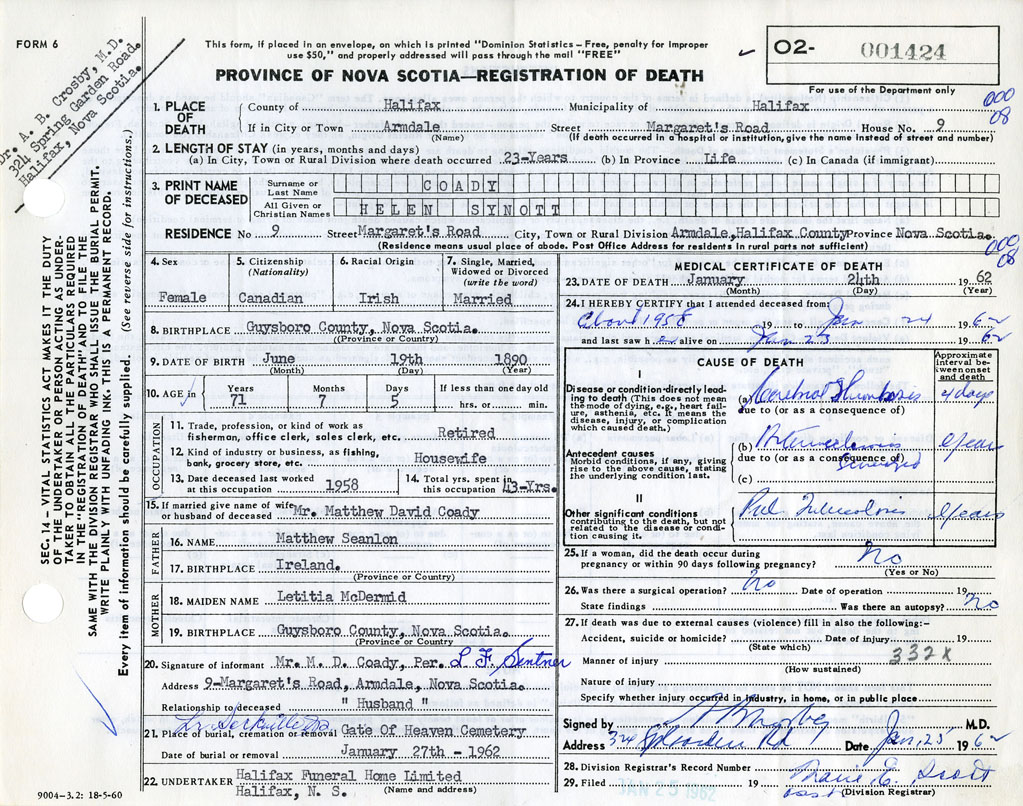 FORM 6
This form, if placed in an envelope, on which is printed "Dominion Statistics – Free, penalty for improper
use $50," and properly addressed will pass through the mail "FREE"
O2- 001424
For use of the Department only
PROVINCE OF NOVA SCOTIA—REGISTRATION OF DEATH
Dr. A. B. Crosby, M.D.
321 Spring Garden Road.
Halifax, Nova Scotia.
SEC. 14 – VITAL STATISTICS ACT MAKES IT THE DUTY
OF THE UNDERTAKER OR PERSON ACTING AS UNDER-
TAKER TO OBTAIN ALL THE PARTICULARS REQUIRED
IN THE "REGISTRATION OF DEATH" AND TO FILE THE
SAME WITH THE DIVISION REGISTRAR WHO SHALL ISSUE THE BURIAL PERMIT.
WRITE PLAINLY WITH UNFADING INK. THIS IS A PERMANENT RECORD.
Every item of information should be carefully supplied. (See reverse side for instructions.)
1. PLACE OF DEATH
County of Halifax Municipality of Halifax
000
08
If in City or Town Armdale Street Margaret's Road House No. 9
(Name) (If death occurred in a hospital or institution, give the name instead of street and number)
2. LENGTH OF STAY (in years, months and days)
(a) In City, Town or Rural Division where death occurred 23-Years (b) In Province Life (c) In Canada (if immigrant)
3. PRINT NAME OF DECEASED
Surname or Last Name COADY
All Given or Christian Names HELEN SYNOTT
RESIDENCE No 9 Street Margaret's Road City, Town or Rural Division Armdale, Halifax County Province Nova Scotia.
(Residence means usual place of abode. Post Office Address for residents in rural parts not sufficient)
000
08
4. Sex Female
5. Citizenship (Nationality) Canadian
6. Racial Origin Irish
7. Single, Married, Widowed or Divorced (write the word) Married
8. BIRTHPLACE Guysboro County, Nova Scotia.
(Province or Country)
9. DATE OF BIRTH June 19th 1890
(Month) (Day) (Year)
10. AGE in Years 71 Months 7 Days 5 If less than one day old hrs. or min.
OCCUPATION
11. Trade, profession, or kind of work as
fisherman, office clerk, sales clerk, etc. Retired
12. Kind of industry or business, as fishing,
bank, grocery store, etc. Housewife
13. Date deceased last worked at this occupation 1958
14. Total yrs. spent in this occupation 43-Yrs.
15. If married give name of wife
or husband of deceased Mr. Matthew David Coady
FATHER
16. NAME Matthew Seanlon
17. BIRTHPLACE Ireland.
(Province or Country)
MOTHER
18. MAIDEN NAME Letitia McDermid
19. BIRTHPLACE Guysboro County, Nova Scotia.
(Province or Country)
20. Signature of informant Mr. M. D. Coady, Per. L F Sentner
Address 9-Margaret's Road, Armdale, Nova Scotia.
Relationship to deceased " Husband "
21. Place of burial, cremation or removal Gate Of Heaven Cemetery
Date of burial or removal January 27th - 1962
22. UNDERTAKER Halifax Funeral Home Limited
Halifax, N. S. (Name and address)
9004-3.2: 18-5-60
MEDICAL CERTIFICATE OF DEATH
23. DATE OF DEATH January 24th 1962
(Month) (Day) (Year)
24. I HEREBY CERTIFY that I attended deceased from:
About 1958 19 to Jan 24 1962
and last saw her alive on Jan 23 1962
CAUSE OF DEATH
Approximate interval between onset and death
I
Disease or condition directly lead-
ing to death (This does not mean
the mode of dying, e.g., heart fail-
ure, asthenia, etc. It means the
disease, injury, or complication
which caused death.)
(a) Cerebral Thrombosis 4 days
due to (or as a consequence of)
Antecedent causes
Morbid condition, if any, giving
rise to the above cause, stating
the underlying condition last.
(b) Arteriosclerosis years
due to (or as a consequence of)
(c)
II
Other significant conditions
contributing to the death, but not
related to the disease or condi-
tion causing it.
Pul Tuberculosis years
25. If a woman, did the death occur during
pregnancy or within 90 days following pregnancy? No
(Yes or No)
26. Was there a surgical operation? no Date of operation 19
State findings Was there an autopsy? no
27. If death was due to external causes (violence) fill in also the following:-
Accident, suicide or homicide? Date of injury 19
(State which)
332X
Manner of injury
(How sustained)
Nature of injury
Specify whether injury occurred in industry, in home, or in public place
Signed by A B Crosby M.D.
Address 324 Spg Garden Rd Date Jan. 25 1962
28. Division Registrar's Record Number
29. Filed JAN 25 1962 19 Marie E. Scott
(Division Registrar)